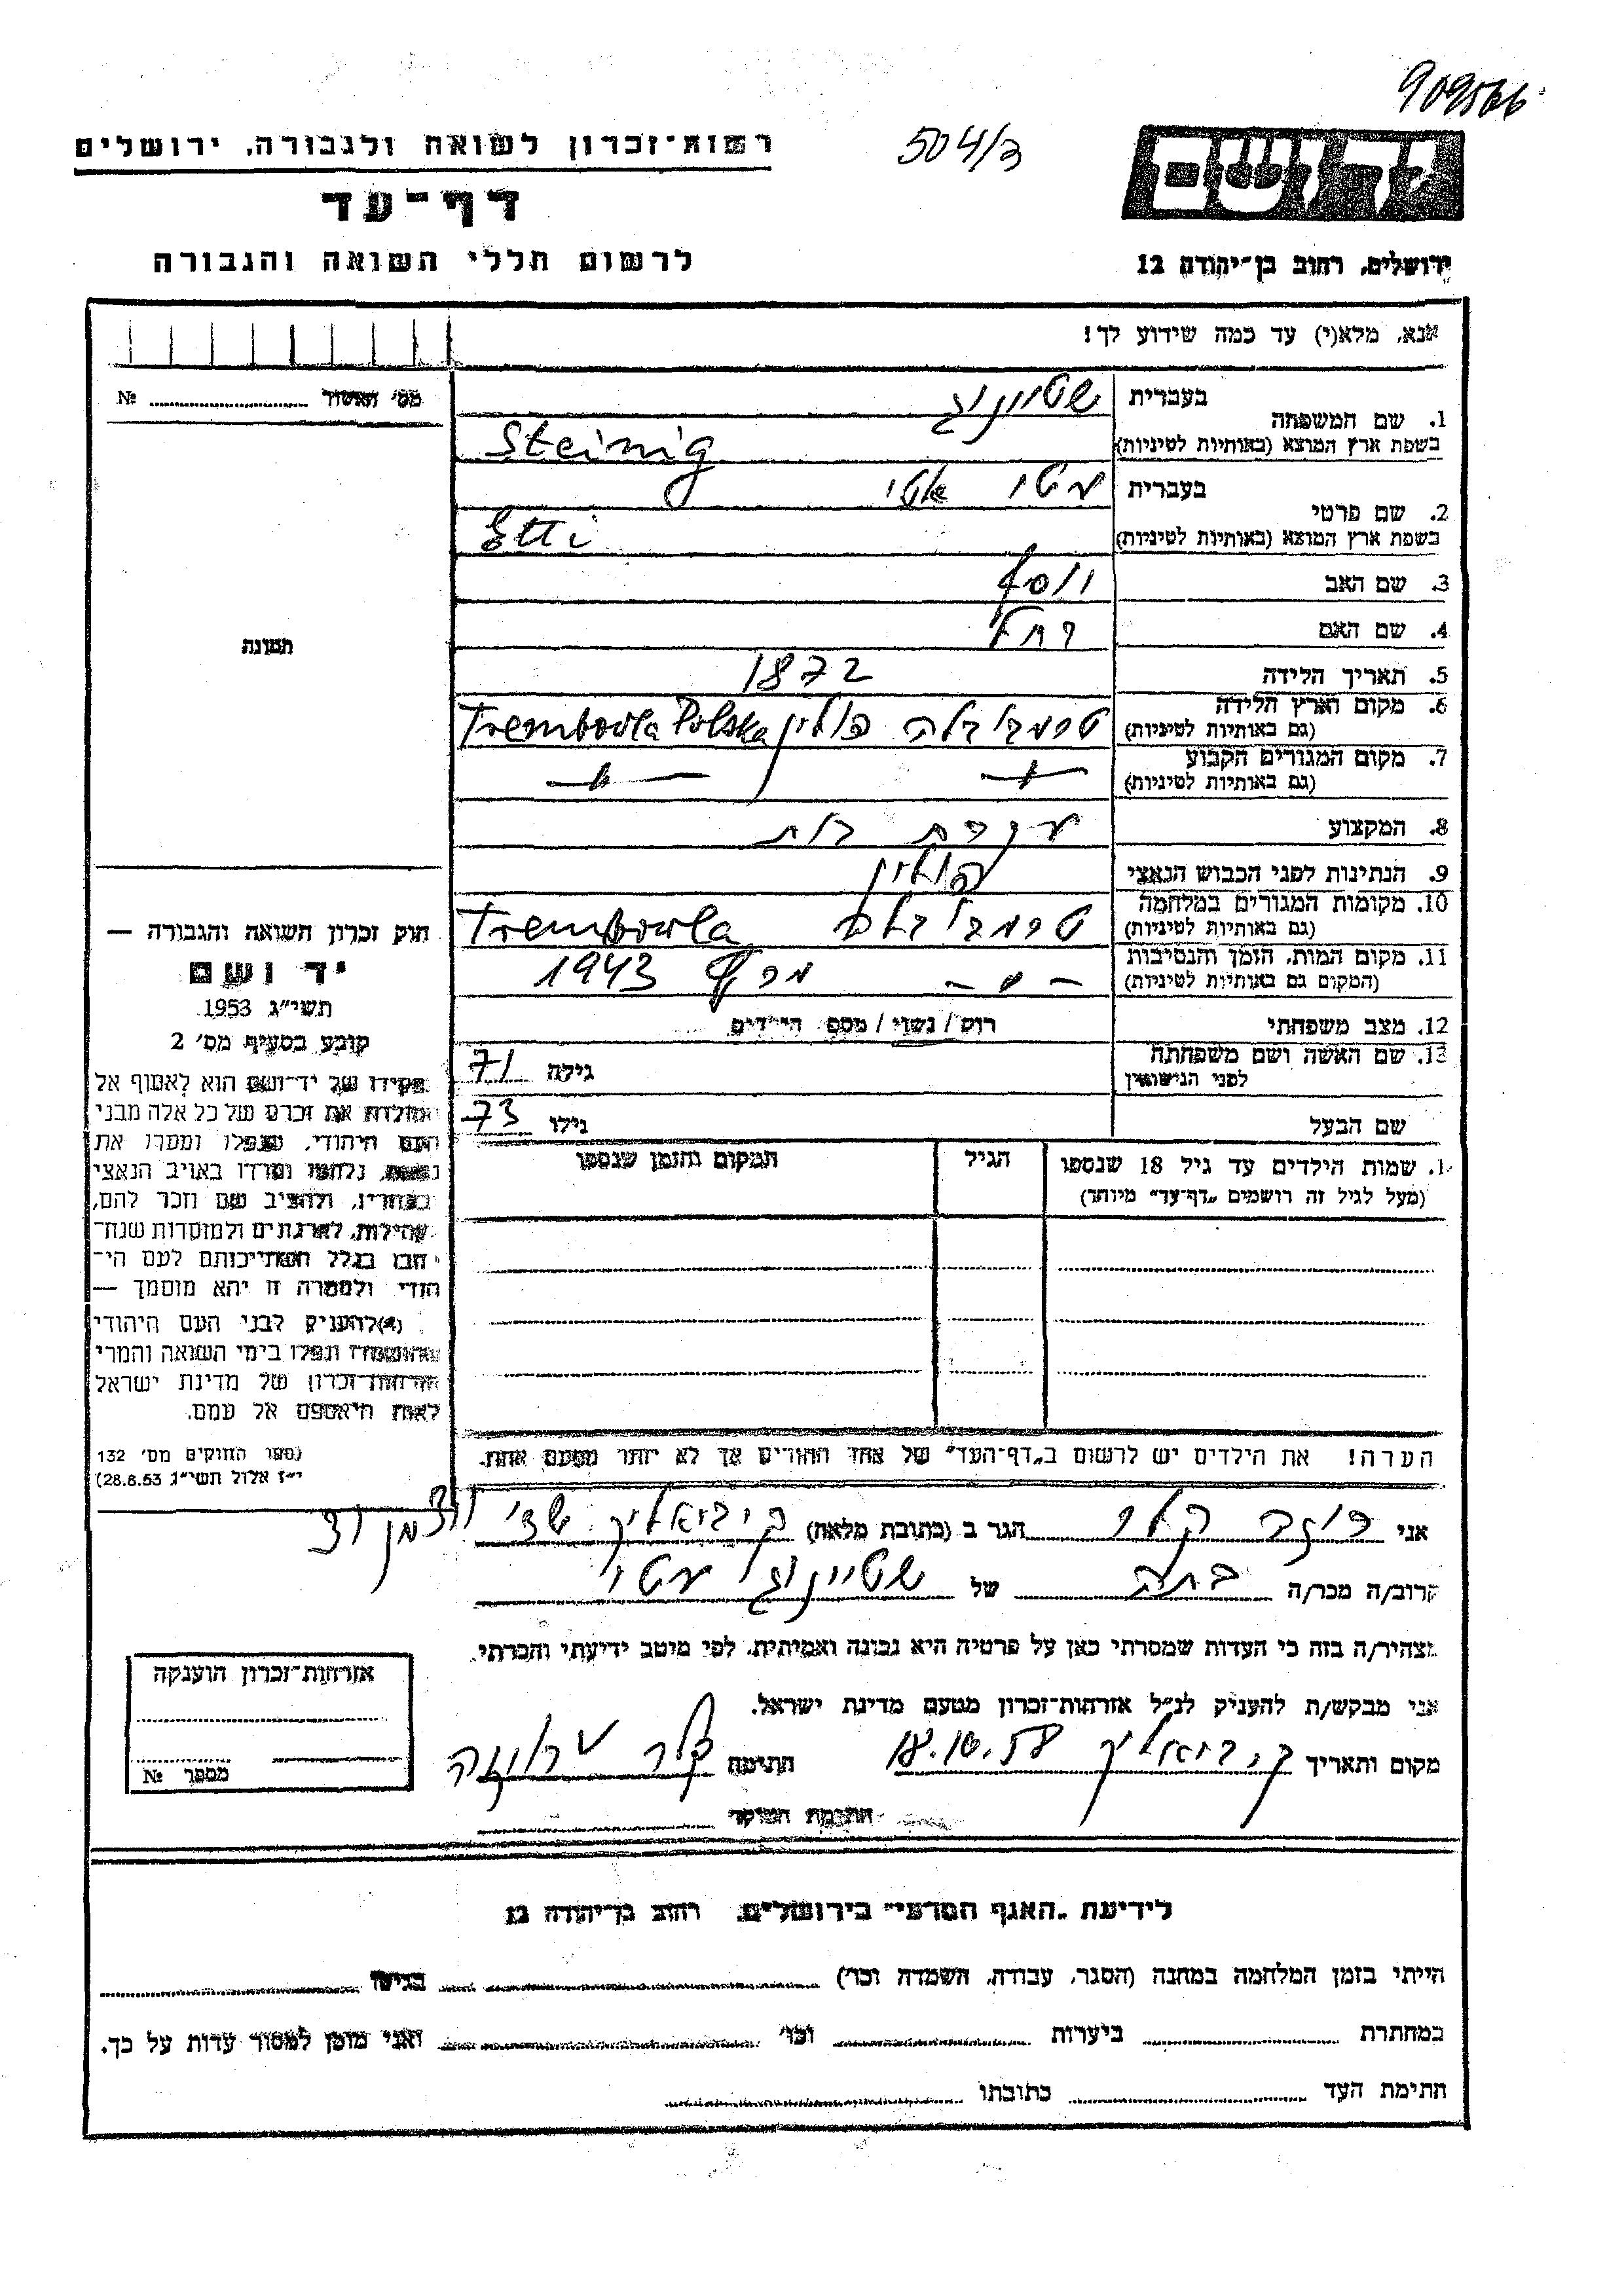 909566
504/3
רשות־זכרון לשואה ולגבורה, ירושלים
דף־עד
לרשום חללי השואה והגבורה
יד ושם
ירושלים, רחוב בן־יהודה 12
אנא, מלא(י) עד כמה שידוע לך!
מס' האשור № 
1. שם המשפחה
בעברית שטייניג
בשפת ארץ המוצא (באותיות לטיניות) Steinig
2. שם פרטי
בעברית עטי אטי
בשפת ארץ המוצא (באותיות לטיניות) Etti
3. שם האב יוסף
4. שם האם רחל
5. תאריך הלידה 1872
6. מקום וארץ הלידה (גם באותיות לטיניות) טרמבובלה פולין Trembovla Polska
7. מקום המגורים הקבוע (גם באותיות לטיניות)
8. המקצוע עקרת בית
9. הנתינות לפני הכבוש הנאצי פולין
10. מקומות המגורים במלחמה (גם באותיות לטיניות) טרמבובלה Trembovla
11. מקום המות, הזמן והנסיבות (המקום גם באותיות לטיניות) 1943
12. מצב משפחתי רוק / נשוי / מספר הילדים
13. שם האשה ושם משפחתה לפני הנישואין גילה 71
שם הבעל גילו 73
שמות הילדים עד גיל 18 שנספו (מעל לגיל זה רושמים „דף־עד" מיוחד)
הגיל
המקום והזמן שנספו
הערה! את הילדים יש לרשום ב„דף־העד" של אחד ההורים אך לא יותר מפעם אחת.
תמונה
חוק זכרון השואה והגבורה —
יד ושם
תשי"ג 1953
קובע בסעיף מס' 2
תפקידו של יד־ושם הוא לאסוף אל
המולדת את זכרם של כל אלה מבני
העם היהודי, שנפלו ומסרו את
נפשם, נלחמו ומרדו באויב הנאצי
ובעוזריו, ולהציב שם וזכר להם,
לקהילות, לארגונים ולמוסדות שנח־
רבו בגלל השתייכותם לעם הי־
הודי ולמטרה זו יהא מוסמך —
(4) להעניק לבני העם היהודי
שהושמדו ונפלו בימי השואה והמרי
אזרחות־זכרון של מדינת ישראל
לאות היאספם אל עמם.
(ספר החוקים מס' 132
י"ז אלול תשי"ג 28.8.53)
אני הגר ב (כתובת מלאה) ק. ביאליק
קרוב/ה מכר/ה בתה של שטייניג עטי
מצהיר/ה בזה כי העדות שמסרתי כאן על פרטיה היא נכונה ואמיתית, לפי מיטב ידיעתי והכרתי.
אני מבקש/ת להעניק לנ"ל אזרחות־זכרון מטעם מדינת ישראל.
מקום ותאריך ק. ביאליק 18.10.58 חתימה
חתימת הפוקד
אזרחות־זכרון הוענקה
מספר №
לידיעת „האגף המדעי" בירושלים, רחוב בן־יהודה 12
הייתי בזמן המלחמה במחנה (הסגר, עבודה, השמדה וכו') בגיטו
במחתרת ביערות וכו' ואני מוכן למסור עדות על כך.
חתימת העד כתובתו